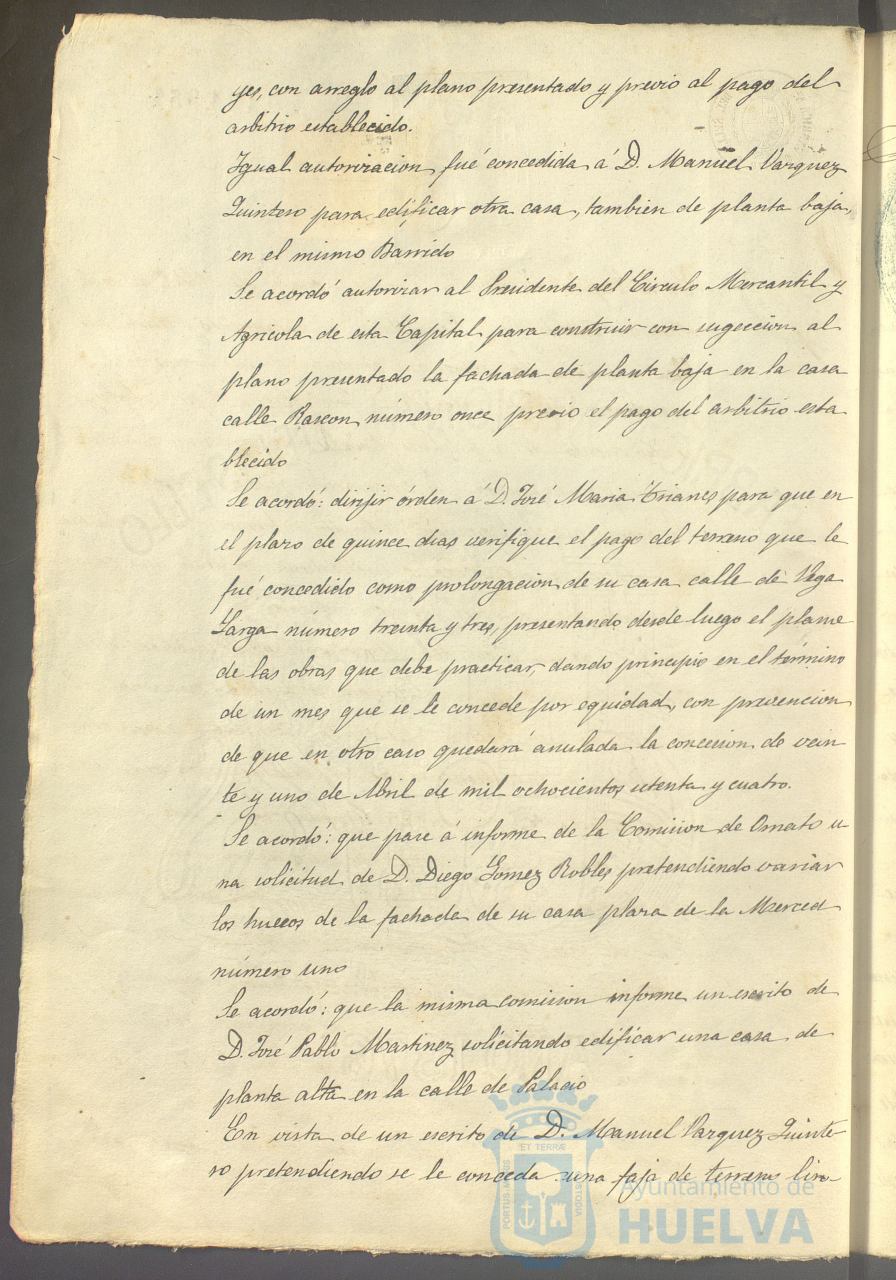 yes, con arreglo al plano presentado y previo al pago del
arbitrio establecido.
Igual autorizacion fué concedida á D. Manuel Vazquez
Quintero para edificar otra casa, tambien de planta baja,
en el mismo Barrido
Se acordó autorizar al Presidente del Circulo Mercantil y
Agricola de esta Capital para construir con sugeccion al
plano presentado la fachada de planta baja en la casa
calle Rascon número once previo el pago del arbitrio esta
blecido
Se acordó: dirijir órden á D. José Maria Trianes para que en
el plazo de quince dias verifique el pago del terreno que le
fué concedido como prolongacion de su casa calle de Vega
Larga número treinta y tres, presentando desde luego el plano
de las obras que debe practicar, dando principio en el término
de un mes que se le concede por equidad, con prevencion
de que en otro caso quedará anulada la concesion de vein
te y uno de Abril de mil ochocientos setenta y cuatro.
Se acordó: que pase á informe de la Comision de Ornato u
na solicitud de D. Diego Gomez Robles pretendiendo variar
los huecos de la fachada de su casa plaza de la Merced
número uno
Se acordó: que la misma comision informe un escrito de
D. José Pablo Martinez solicitando edificar una casa de
planta alta en la calle de Palacio
En vista de un escrito de D. Manuel Vazquez Quinte-
ro pretendiendo se le conceda una faja de terreno lin-
ET TERRÆ
PORTUS MARIS
CUSTODIA
Ayuntamiento de
HUELVA